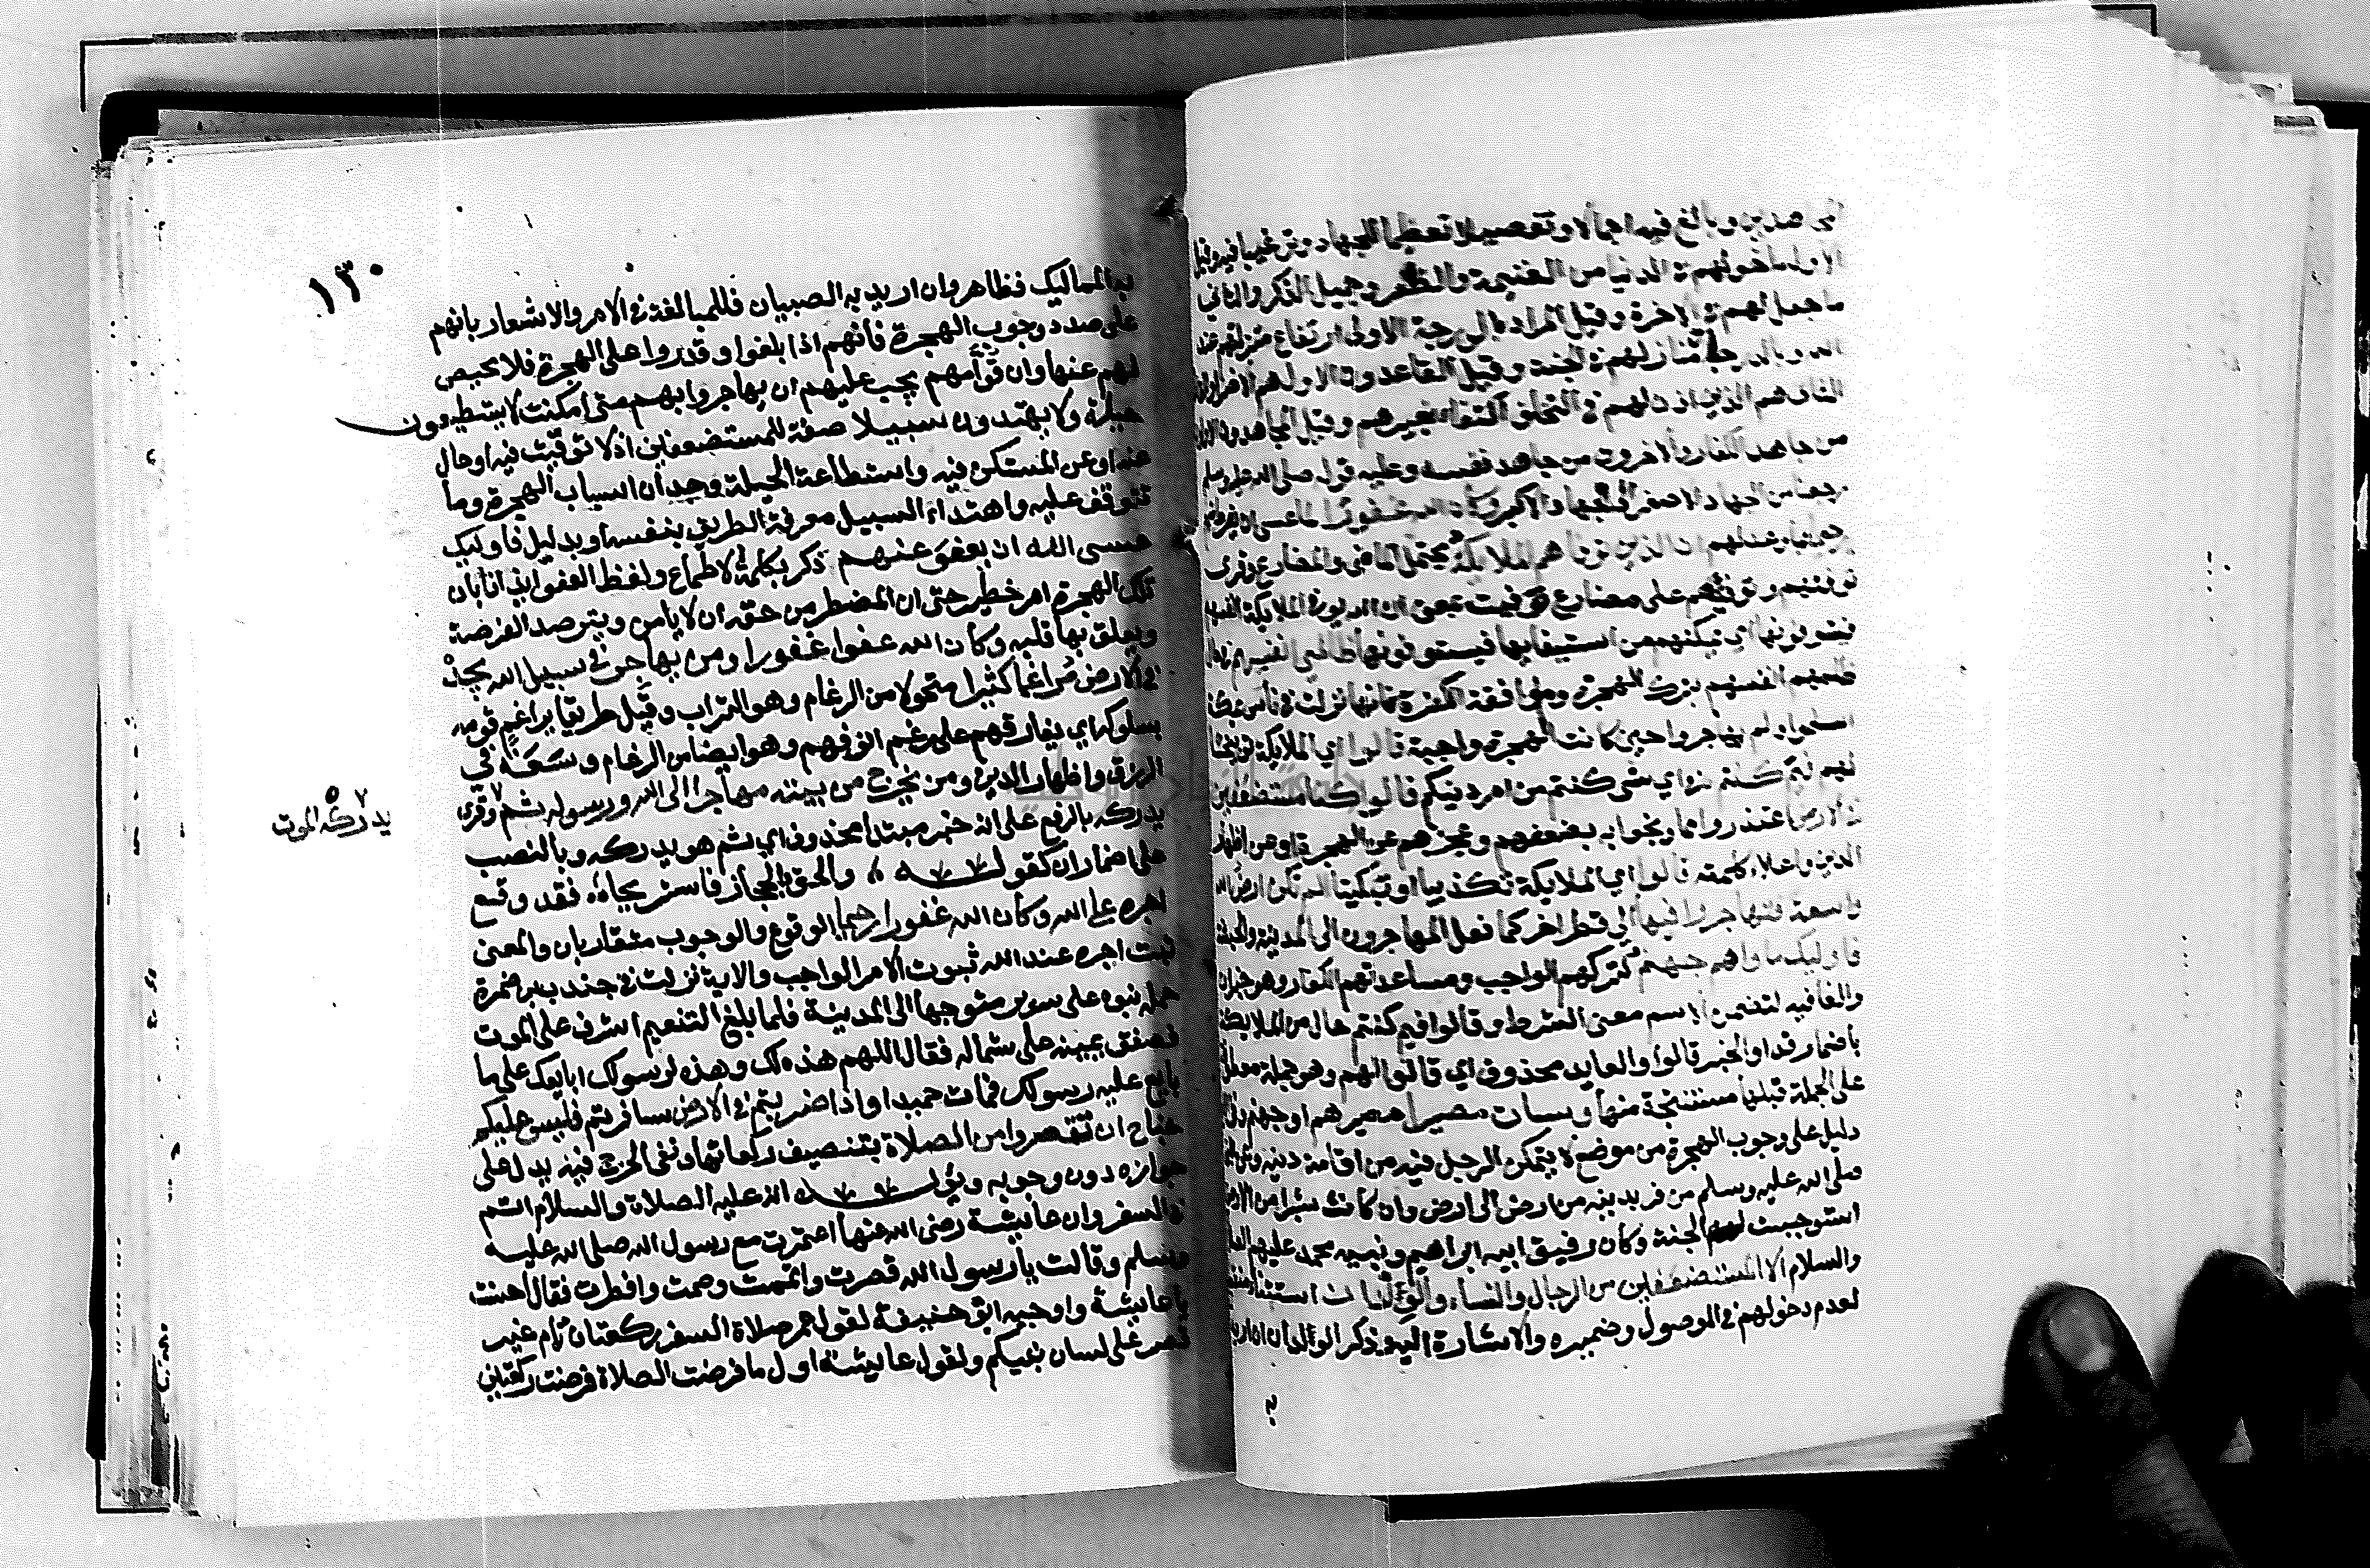 المجاهدين وبالغ فيه اجمالا وتفصيلا تعظيما للجهاد وترغيبا فيه وقيل
الاول ما خولهم في الدنيا من الغنيمة والظفر وجميل الذكر والثاني
ما جعل لهم في الاخرة وقيل المراد بالدرجة الاولى ارتفاع منزلتهم عند
الله وبالدرجات منازلهم في الجنة وقيل القاعدون الاول هم الاضراء
القاعدون هم الذين اذن لهم في التخلف اكتفاء بغيرهم وقيل المجاهدون الاولون
من جاهد الكفار والاخرون من جاهد نفسه وعليه قوله صلى الله عليه وسلم
رجعنا من الجهاد الاصغر الى الجهاد الاكبر وكان الله غفورا لما عسى ان يفرط منهم
رحيما بما وعد لهم ان الذين توفاهم الملايكة يحتمل الماضي والمضارع وقرى
توفتهم وتوفيهم على مضارع توفيت بمعنى ان الله يوفي الملايكة انفسهم
فيتوفونها اي يمكنهم من استيفايها فيستوفونها ظالمي انفسهم في حال
ظلمهم انفسهم بترك الهجرة وموافقة الكفرة فانها نزلت في ناس من مكة
اسلموا ولم يهاجروا حين كانت الهجرة واجبة قالوا اي الملايكة توبيخا
لهم فيم كنتم في اي شي كنتم من امر دينكم قالوا كنا مستضعفين
في الارض اعتذروا مما وبخوا به بضعفهم وعجزهم عن الهجرة او عن اظهار
الدين واعلاء كلمته قالوا اي الملايكة تكذيبا او تبكيتا الم تكن ارض الله
واسعة فتهاجروا فيها الى قطر اخر كما فعل المهاجرون الى المدينة والحبشة
فاوليك ماواهم جهنم لتركهم الواجب ومساعدتهم الكفار وهو خبر ان
والفا فيه لتضمن الاسم معنى الشرط وقالوا فيم كنتم حال من الملايكة
باضمار قد او الخبر قالوا والعايد محذوف اي قالوا لهم وهو جملة معطوفة
على الجملة قبلها مستنتجة منها وساءت مصيرا مصيرهم او جهنم وفي الاية
دليل على وجوب الهجرة من موضع لا يتمكن الرجل فيه من اقامة دينه وعن النبي
صلى الله عليه وسلم من فر بدينه من ارض الى ارض وان كانت شبرا من الارض
استوجبت له الجنة وكان رفيق ابيه ابراهيم ونبيه محمد عليهم الصلاة
والسلام الا المستضعفين من الرجال والنساء والولدان استثناء منقطع
لعدم دخولهم في الموصول وضميره والاشارة اليه وذكر الولدان ان اريد
به
١٣٠
به المماليك فظاهر وان اريد به الصبيان فللمبالغة في الامر والاشعار بانهم
على صدد وجوب الهجرة فانهم اذا بلغوا وقدروا على الهجرة فلا محيص
لهم عنها وان قوامهم يجب عليهم ان يهاجروا بهم متى امكنت لا يستطيعون
حيلة ولا يهتدون سبيلا صفة للمستضعفين اذ لا توقيت فيه او حال
عنه او عن المستكن فيه واستطاعة الحيلة وجدان اسباب الهجرة وما
تتوقف عليه واهتداء السبيل معرفة الطريق بنفسه او بدليل فاوليك
عسى الله ان يعفو عنهم ذكر بكلمة الاطماع ولفظ العفو ايذانا بان
تلك الهجرة امر خطير حتى ان المضطر من حقه ان لا يامن ويترصد الفرصة
ويعلق بها قلبه وكان الله عفوا غفورا ومن يهاجر في سبيل الله يجد
في الارض مراغما كثيرا متحولا من الرغام وهو التراب وقيل طريقا يراغم قومه
بسلوكه اي يفارقهم على رغم انوفهم وهو ايضا من الرغام وسعة في
الرزق واظهار الدين ومن يخرج من بيته مهاجرا الى الله ورسوله ثم وقرى
يدركه الموت
يدركه بالرفع على انه خبر مبتدا محذوف اي ثم هو يدركه وبالنصب
على اضمار ان كقوله والحق بالحجاز فاستريحا، فقد وقع
اجره على الله وكان الله غفورا رحيما الوقوع والوجوب متقاربان والمعنى
ثبت اجره عند الله ثبوت الامر الواجب والاية نزلت في جندب بن ضمرة
حمله بنوه على سرير متوجها الى المدينة فلما بلغ التنعيم اشرف على الموت
فصفق بيمينه على شماله فقال اللهم هذه لك وهذه لرسولك ابايعك على ما
بايع عليه رسولك فمات حميدا واذا ضربتم في الارض سافرتم فليس عليكم
جناح ان تقصروا من الصلاة بتنصيف ركعاتها ونفي الحرج فيه يدل على
جوازه دون وجوبه ويؤيده انه عليه الصلاة والسلام اتم
في السفر وان عايشة رضي الله عنها اعتمرت مع رسول الله صلى الله عليه
وسلم وقالت يا رسول الله قصرت واتممت وصمت وافطرت فقال احسنت
يا عايشة واوجبه ابو حنيفة لقول عمر صلاة السفر ركعتان تام غير
قصر على لسان نبيكم ولقول عايشة اول ما فرضت الصلاة فرضت ركعتين